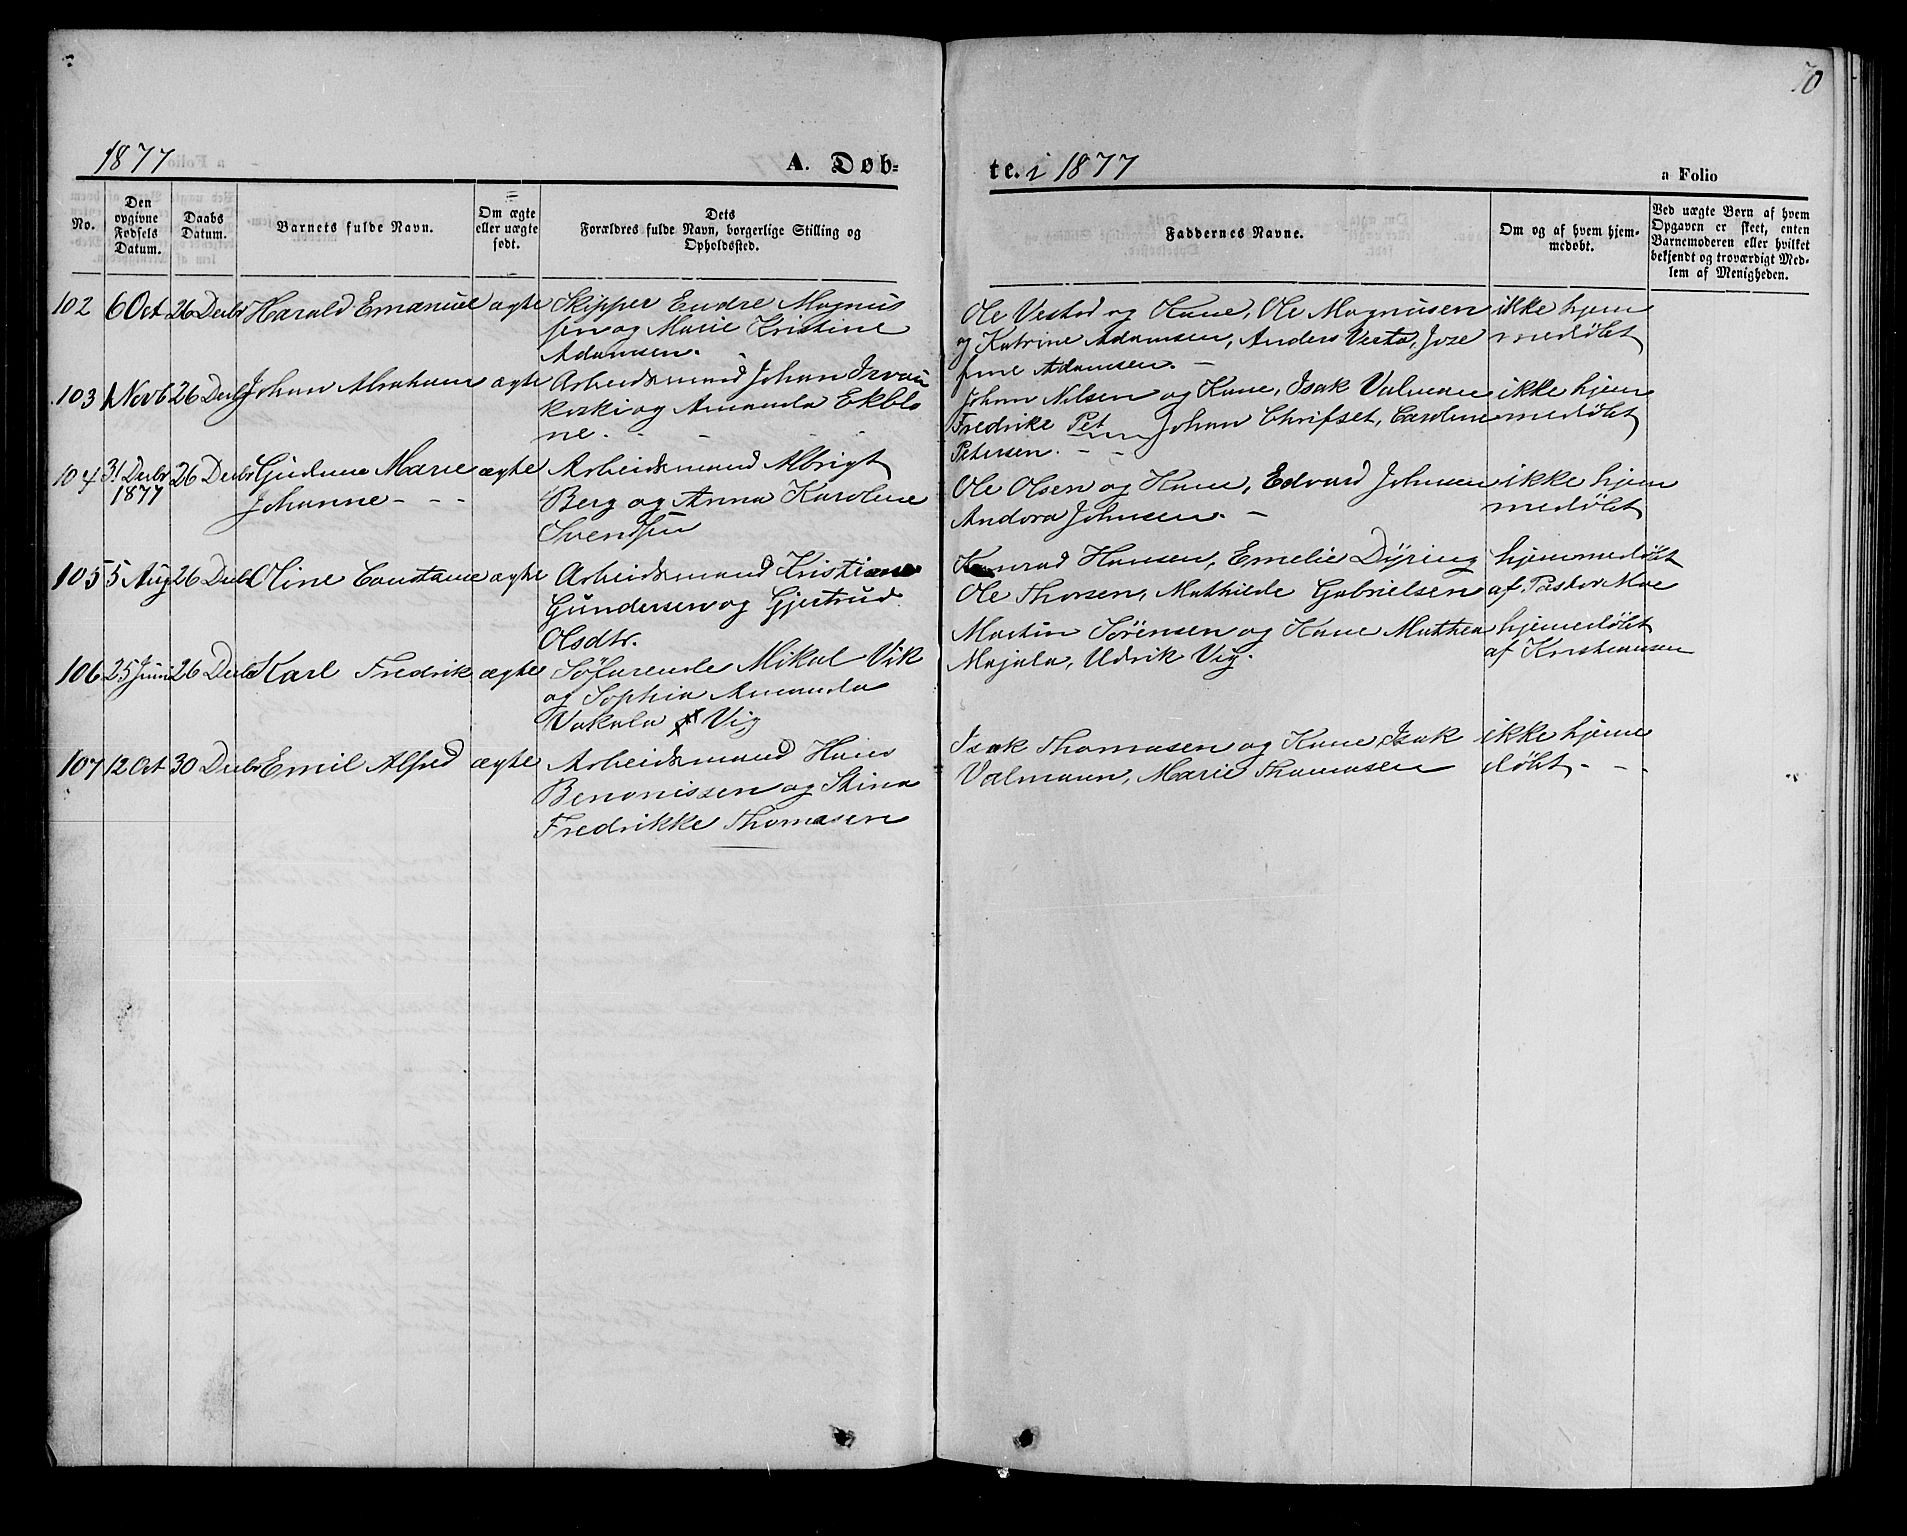 70
1877
A. Døb=
te. i 1877
a Folio
No.
Den
opgivne
Fødsels
Datum.
Daabs
Datum.
Barnets fulde Navn.
Om ægte
eller uægte
født.
Dets
Forældres fulde Navn, borgerlige Stilling og
Opholdssted.
Faddernes Navne.
Om og af hvem hjem-
medøbt.
Ved uægte Børn af hvem
Opgaven er skeet, enten
Barnemoderen eller hvilket
bekjendt og troværdigt Med-
lem af Menigheden.
102 6 Oct 26 Decbr Harald Emanuel ægte Skipper Endre Magnus
sen og Marie Kristine
Adamsen.
Ole Vestad og Kone, Ole Magnusen
og Katrine Adamsen, Anders Vesta, Joze
fine Adamsen. -
ikke hjem
medøbt
103 1 Novb 26 Decb Johan Abraham ægte Arbeidsmand Johan
koski og Amanda Ekblo
ne. - -
Johan Nilsen og Kone, Isak Valman
Fredrike Pet Johan Chrifset, Caroline
Petersen. - -
ikke hjem
medøbt
104 31 Decbr 26 Decbr Marie ægte Arbeidsmand Albrigt
1877 Johanne - - - Berg og Anna Karoline
Svendsen
Ole Olsen og Kone, Edvard Johnsen
Andora Johnsen. -
ikke hjem
medøbt
105 5 Aug 26 Decb Oline Constance ægte Arbeidsmand Kristian
Gundersen og Gjertrud
Olsdtr.
Konrad Hansen, Emelie Dyring
Ole Thorsen, Mathilde Gabrielsen
hjemmedøbt
af Pastor Moe
106 25 Juni 26 Decb Karl Fredrik ægte Søfarende Mikal Vik
og Sophia Amanda
Vakala Vig
Martin Sørensen og Kone Mathea
Majala, Udrik Vig.
hjemedøbt
af Kristiansen
107 12 Oct 30 Decbr Emil Alfred ægte Arbeidsmand Hans
Benonissen og Stina
Fredrikke Thomasen
Isak Thomasen og Kone Isak
Valmann, Marie Thomasen
ikke hjem
døbt - -